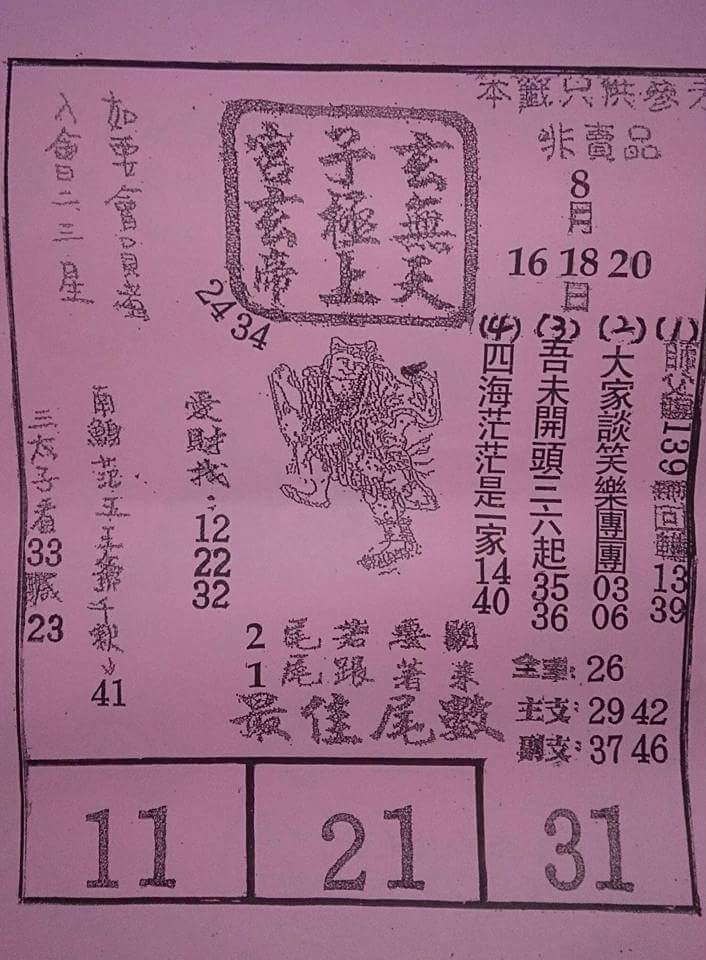 本籤只供參考
非賣品
8
月
16 18 20
日
玄無天
子極上
宮玄啼
24 34
(1) 139 回 13 39
(2) 大家談笑樂團團 03 06
(3) 吾未開頭三六起 35 36
(4) 四海茫茫是一家 14 40
如要會員
入會二三星
愛財找: 12 22 32
南鯤范王 千秋 41
三太子看 33 23
2尾若要開
1尾跟著來
最佳尾數
全車: 26
主支: 29 42
副支: 37 46
11
21
31